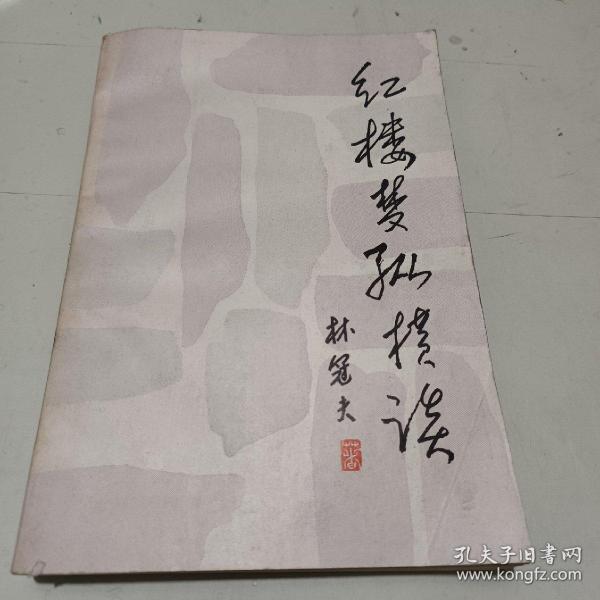 红楼梦纵横谈
林冠夫
著
孔夫子旧书网
www.kongfz.com